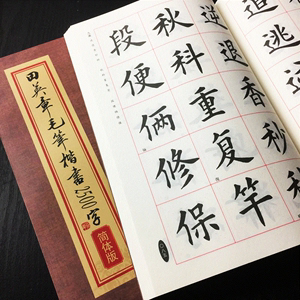 田英章毛笔楷书2500字
简体版
段 秋 逆 道
便 科 退 逃
俩 重 香
修 复 秘
保 竿 秒